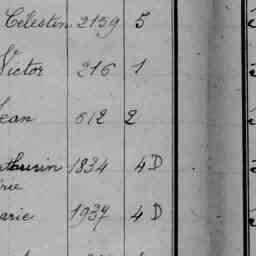 Célestin 2159 5
Victor 216 1
Jean 612 2
Mathurin 1834 4 D
Marie 1937 4 D